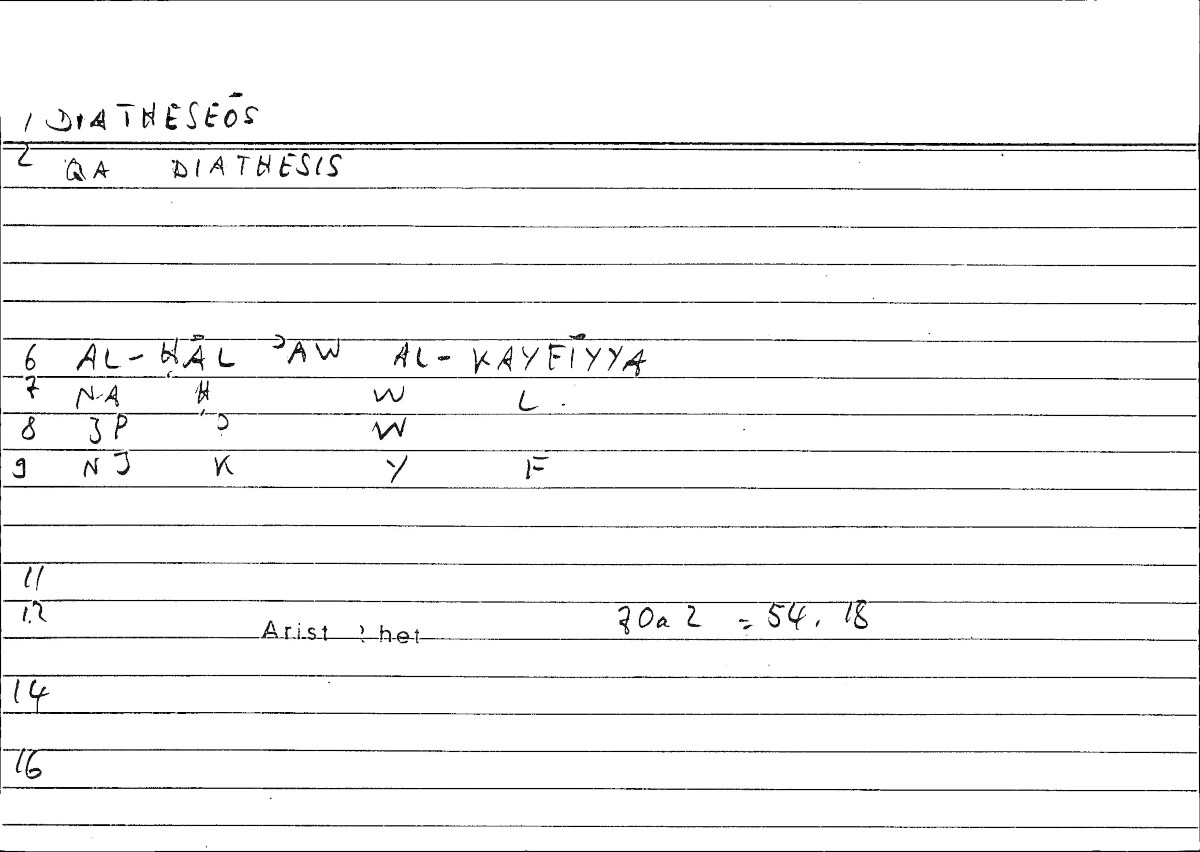 1 DIATHESEŌS
2 QA DIATHESIS
6 AL-ḤĀL ʾAW AL-KAYFĪYYA
7 NA Ḥ W L.
8 JP ʾ W
9 NJ K Y F
11
12 Arist het 70a2 = 54.18
14
16